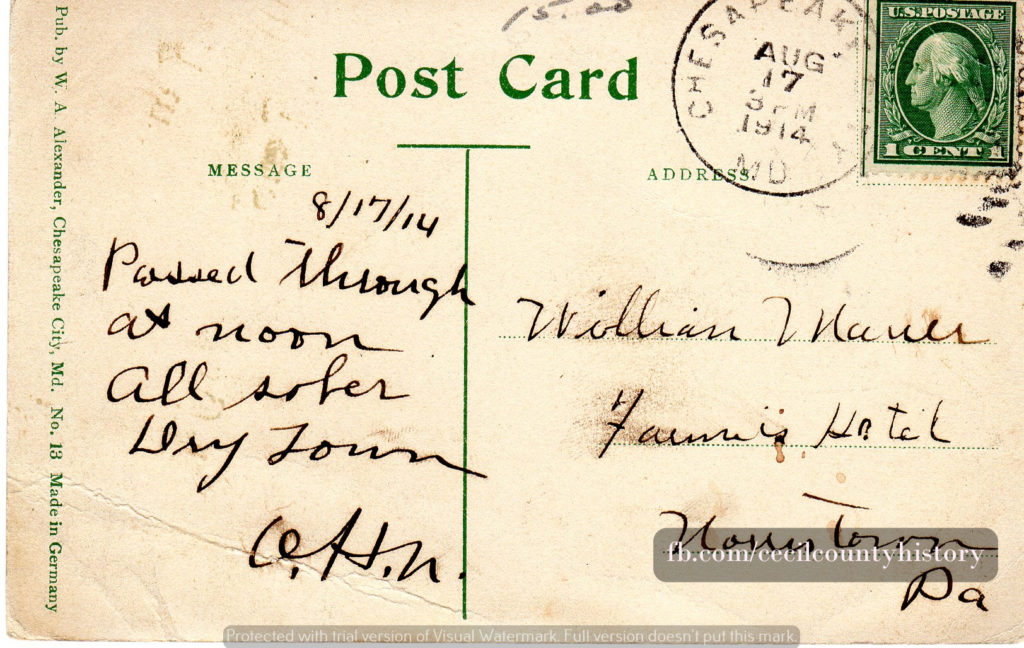 15.00
Post Card
CHESAPEAKE
AUG
17
3 PM
1914
MD
U.S. POSTAGE
1 CENT 1
MESSAGE
ADDRESS.
8/17/14
Passed through
at noon
All sober
Dry Town
William
Hotel
Norristown
Pa
Pub. by W. A. Alexander, Chesapeake City, Md. No. 13 Made in Germany
fb.com/cecilcountyhistory
Protected with trial version of Visual Watermark. Full version doesn't put this mark.